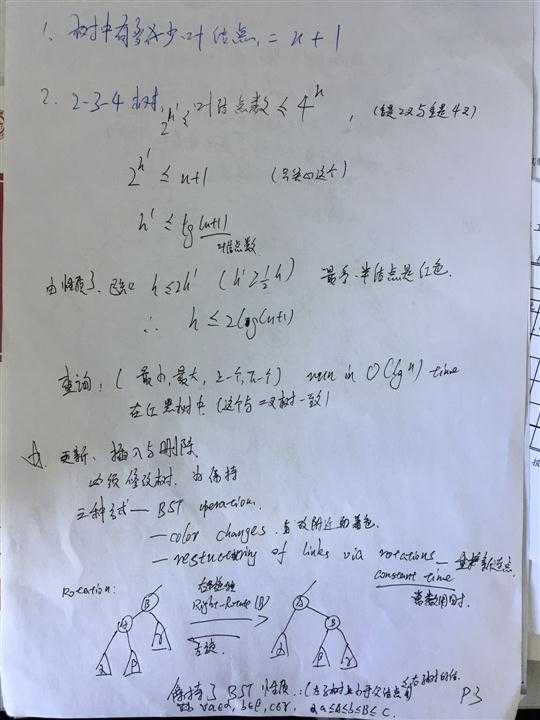 1. 树中有多少叶结点 = n+1
2. 2-3-4树, 2^h' ≤ 叶结点数 ≤ 4^h' , (全是2叉与全是4叉)
2^h' ≤ n+1 (只关心这个)
h' ≤ lg(n+1)
叶结点数
由性质3, h ≤ 2h' (h' ≥ 1/2 h) 最多一半结点是红色.
∴ h ≤ 2lg(n+1)
查询: (最小, 最大, 上一个, 下一个) run in O(lg n) time
在红黑树中 (这个与二叉树一致)
更新、插入与删除
必须修改树. 为保持
三种方式 — BST operation.
— color changes. 着色
— restructuring of links via rotations —
constant time
常数用时.
Rotation:
右旋
Right-Rotate(B)
左旋
B A α β γ
A B α β γ
保持了BST性质
a∈α, b∈β, c∈γ, a≤A≤b≤B≤c.
P3